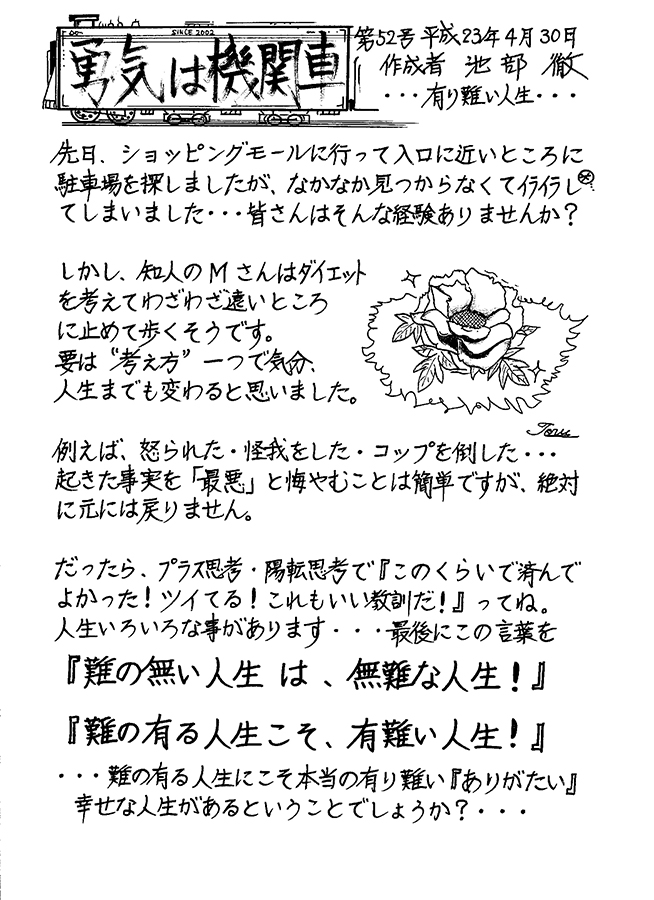 SINCE 2002
勇気は機関車
第52号 平成23年4月30日
作成者 池部 徹
・・・有り難い人生・・・
先日、ショッピングモールに行って入口に近いところに
駐車場を探しましたが、なかなか見つからなくてイライラし
てしまいました・・・皆さんはそんな経験ありませんか？
しかし、知人のMさんはダイエット
を考えてわざわざ遠いところ
に止めて歩くそうです。
要は“考え方”一つで気分、
人生までも変わると思いました。
Toru
例えば、怒られた・怪我をした・コップを倒した・・・
起きた事実を「最悪」と悔やむことは簡単ですが、絶対
に元には戻りません。
だったら、プラス思考・陽転思考で『このくらいで済んで
よかった！ツイてる！これもいい教訓だ！』ってね。
人生いろいろな事があります・・・最後にこの言葉を
『難の無い人生 は 、無難な人生！』
『難の有る人生こそ、有難い人生！』
・・・難の有る人生にこそ本当の有り難い『ありがたい』
幸せな人生があるということでしょうか？・・・